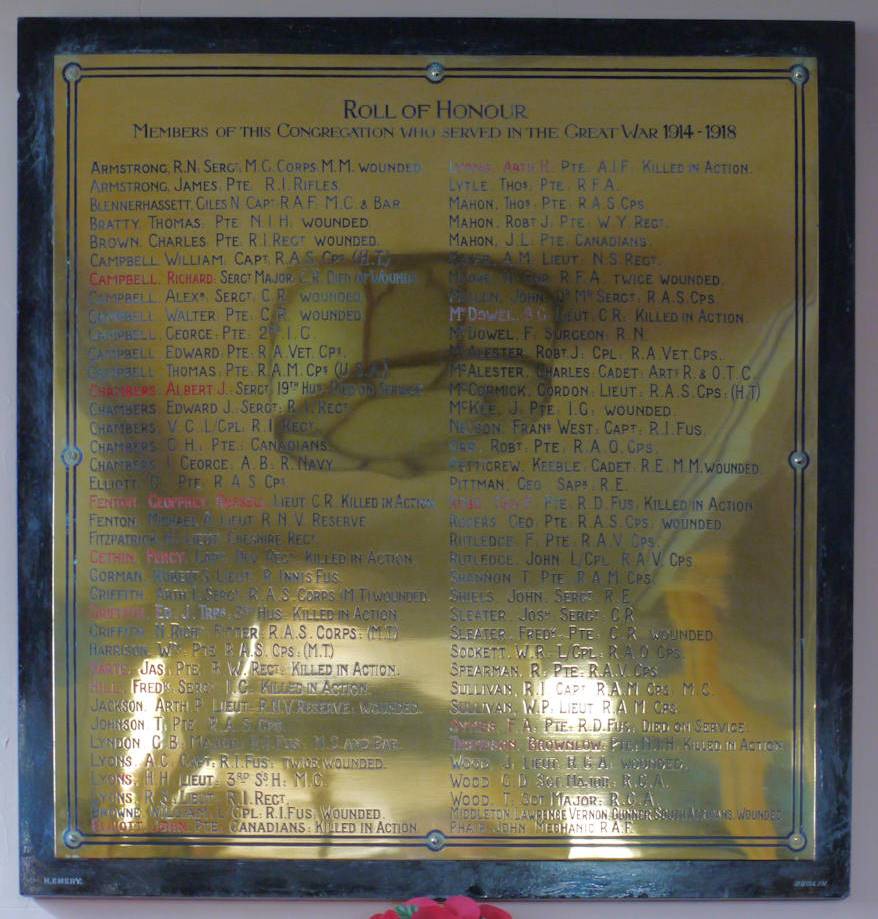 Roll of Honour
Members of this Congregation who served in the Great War 1914-1918
Armstrong, R.N. Sergt, M.G. Corps. M.M. wounded
Armstrong, James, Pte R.I. Rifles.
Blennerhassett, Giles N. Capt. R.A.F. M.C. & Bar
Bratty, Thomas. Pte N.I.H. wounded.
Brown, Charles. Pte R.I. Regt wounded.
Campbell, William, Capt. R.A.S. Cps. (H.T.)
Campbell, Richard: Sergt Major, C.R. Died of Wounds
Campbell, Alexr. Sergt. C.R. wounded
Campbell, Walter. Pte. C.R. wounded
Campbell, George: Pte: 2nd I.G.
Campbell, Edward: Pte: R.A. Vet. Cps.
Campbell, Thomas: Pte: R.A.M. Cps (U.S.A.)
Chambers, Albert J. Sergt 19th Hus. Died on Service
Chambers, Edward J. Sergt: R.I. Regt.
Chambers, V.C. L/Cpl. R.I. Regt.
Chambers, C.H. Pte.: Canadians.
Chambers, J. George. A.B. R. Navy
Elliott, G. Pte. R.A.S. Cps.
Fenton, Geoffrey, Lieut C.R. Killed in Action
Fenton, Michael Lieut R.N.V. Reserve
Fitzpatrick, Lieut Cheshire Regt.
Gethin, Percy. Capt. Dev. Regt. Killed in Action
Gorman, Robert S. Lieut. R. Innis Fus.
Griffith, Arth. Sergt. R.A.S. Corps (M.T.) wounded.
Griffith, Ed. J. Hus. Killed in Action
Griffith, N. Richd Fitter: R.A.S. Corps: (M.T.)
Harrison, Wm. Pte R.A.S. Cps: (M.T.)
Jas. Pte R.W. Regt: Killed in Action.
Hill, Fredk Sergt I.G. Killed in Action.
Jackson, Arth. P. Lieut R.N.V. Reserve: wounded.
Johnson T. Pte. R.A.S. Cps.
Lyndon C.B. Major: Fus. M.C. and Bar.
Lyons, A.C. Capt: R.I. Fus: twice wounded.
Lyons, H.H. Lieut: 3rd S.S.H: M.C.
Lyons, R.S. Lieut R.I. Regt.
Browne, William, L/Cpl: R.I. Fus. Wounded.
Elliott, John, Pte. Canadians: Killed in Action
Lyons, Arth. Pte. A.I.F. Killed in Action.
Lytle, Thos. Pte. R.F.A.
Mahon, Thos. Pte. R.A.S. Cps.
Mahon, Robt J. Pte. W.Y. Regt.
Mahon, J.L. Pte. Canadians.
A.M. Lieut. N.S. Regt.
R.F.A. twice wounded.
John, Qr Mr Sergt. R.A.S. Cps.
McDowel, Lieut. C.R. Killed in Action
McDowel, F. Surgeon: R.N.
McAlester, Robt. J. Cpl. R.A. Vet. Cps.
McAlester, Charles: Cadet: Arty R. & O.T.C.
McCormick, Gordon: Lieut: R.A.S. Cps: (H.T)
McKee, J. Pte: I.G. wounded.
Nelson, Frans West: Capt: R.I. Fus.
Orr, Robt. Pte. R.A.O. Cps.
Petticrew, Keeble, Cadet. R.E. M.M. wounded
Pittman, Geo. Sapr. R.E.
Pte. R.D. Fus. Killed in Action
Rogers, Geo. Pte. R.A.S. Cps. wounded
Rutledge, F. Pte. R.A.V. Cps.
Rutledge, John. L/Cpl. R.A.V. Cps
Shannon T. Pte R.A.M. Cps.
Shiels, John, Sergt. R.E.
Sleater, Josh Sergt. C.R.
Sleater, Fredk. Pte. C.R. wounded.
Sockett, W.R. L/Cpl. R.A.O. Cps.
Spearman, R. Pte. R.A.V. Cps.
Sullivan, R.I. Capt R.A.M. Cps. M.C.
Sullivan, W.P. Lieut R.A.M Cps.
F.A. Pte. R.D. Fus. Died on Service.
Thompson, Brownlow, Pte. N.I.H. Killed in Action
Wood, J. Lieut. R.G.A. wounded.
Wood, G.D. Sgt Major: R.G.A.
Wood, T. Sgt Major: R.G.A.
Middleton, Lawrence Vernon, Gunner, South Africans. Wounded
Phair, John Mechanic R.A.F.
H. Emery.
Dublin